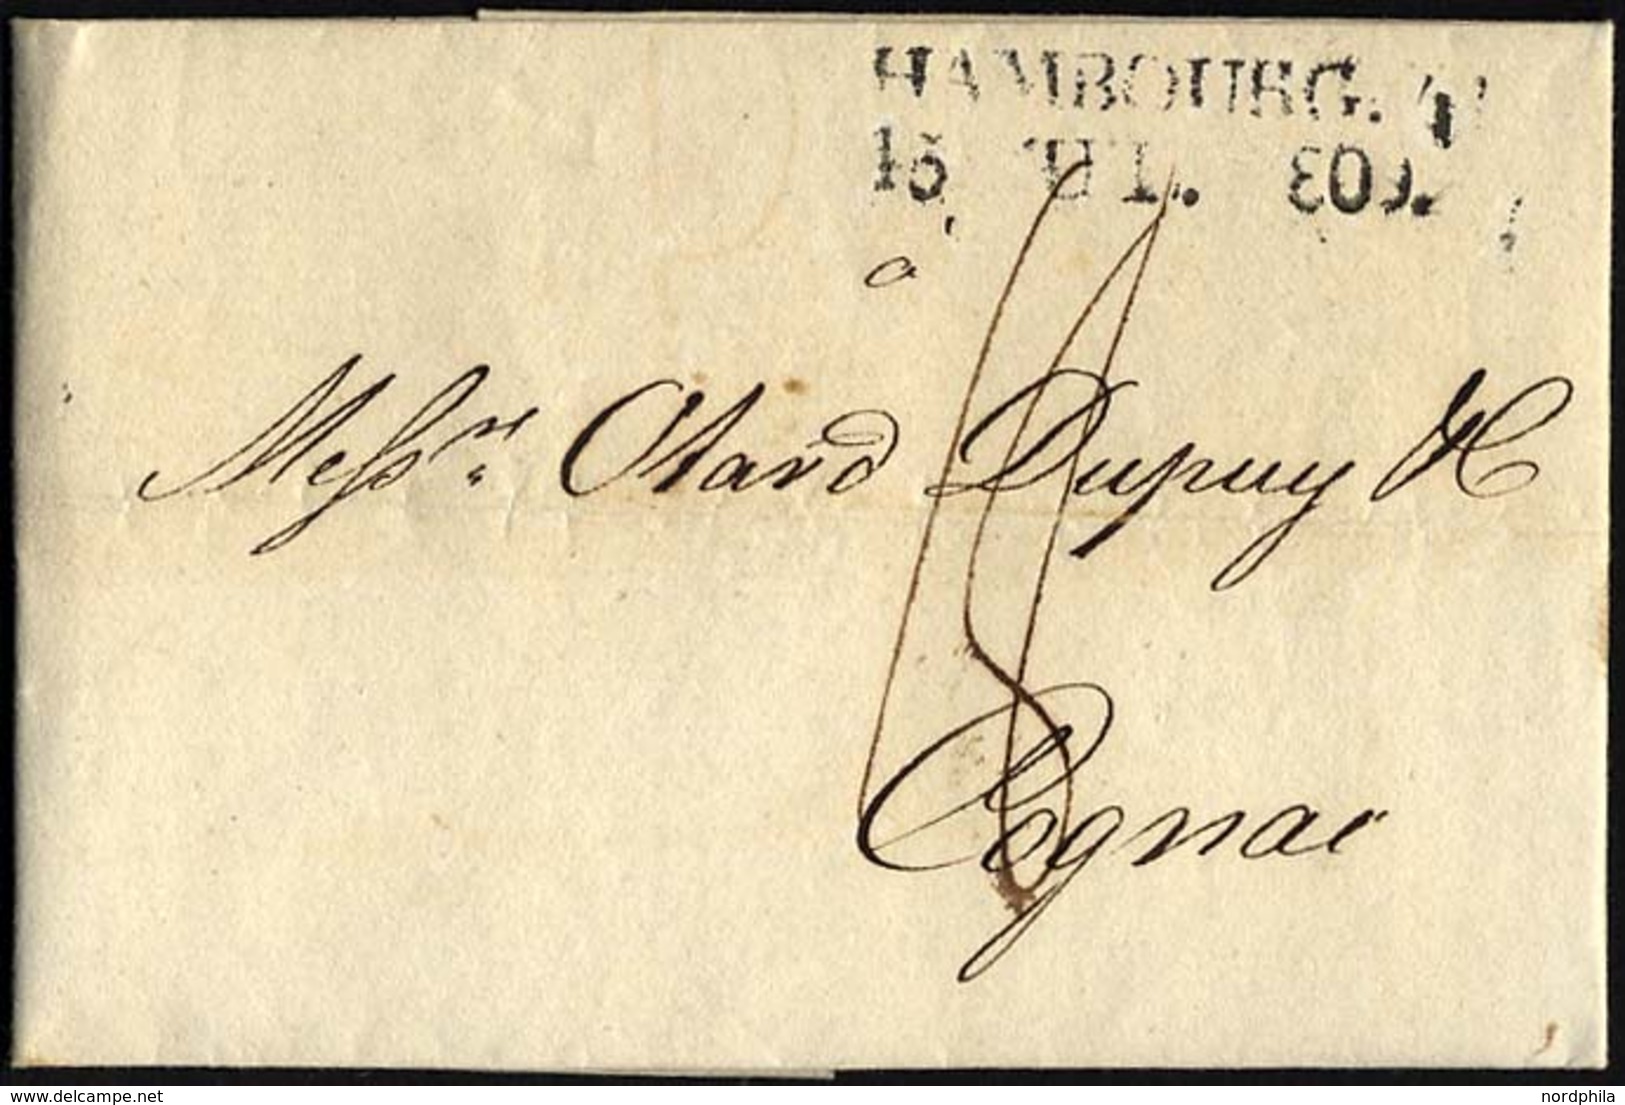 HAMBOURG.
15
à
Messrs. Otard Dupuy & C
Cognac
delcampe.net
nordphila